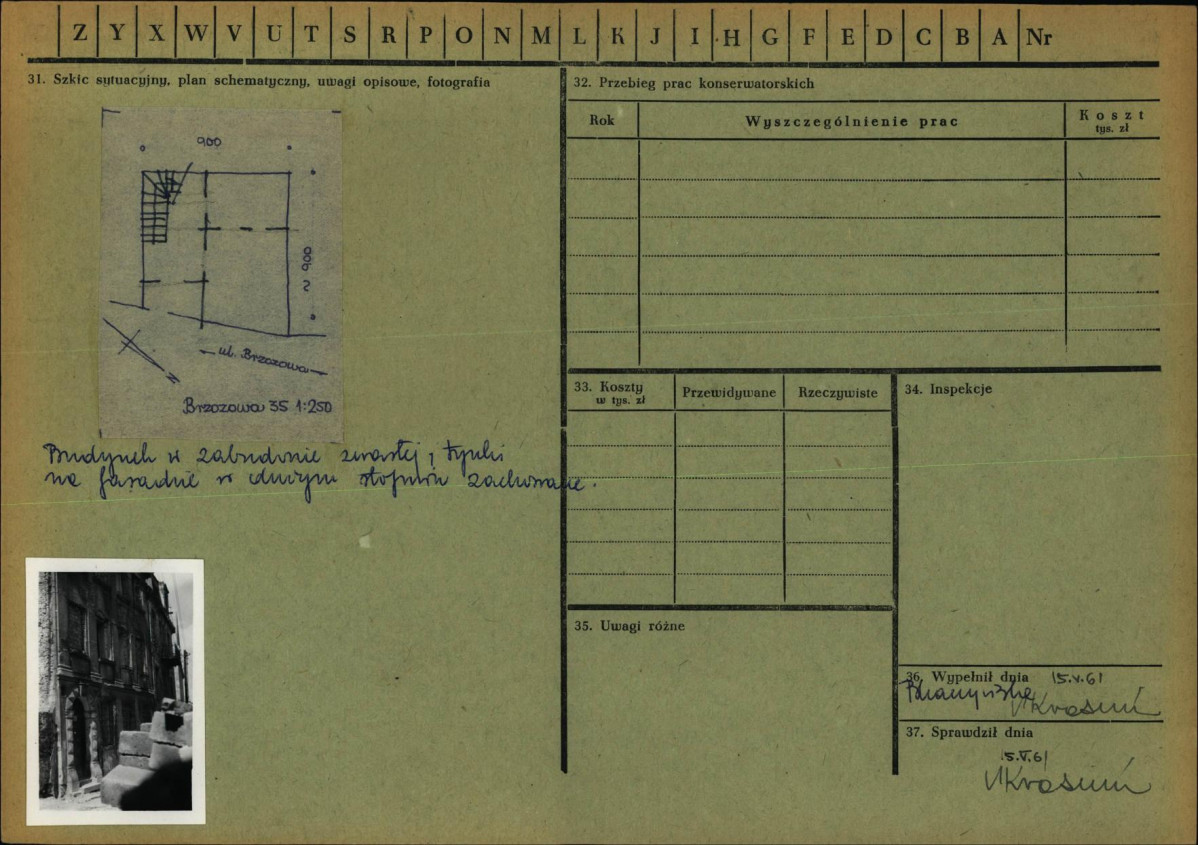 Z Y X W V U T S R P O N M L K J I H G F E D C B A Nr
31. Szkic sytuacyjny, plan schematyczny, uwagi opisowe, fotografia
900
900
ul. Brzozowa
Brzozowa 35 1:250
Budynek w zabudowie zwartej, tynki
na fasadzie w dużym stopniu zachowane.
32. Przebieg prac konserwatorskich
Rok
Wyszczególnienie prac
Koszt
tys. zł
33. Koszty
w tys. zł
Przewidywane
Rzeczywiste
34. Inspekcje
35. Uwagi różne
36. Wypełnił dnia 15.V.61
37. Sprawdził dnia
15.V.61